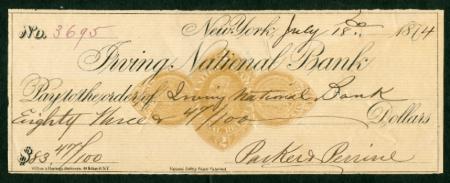 No. 3695 New York, July 18th 1874
Irving National Bank,
Pay to the order of Irving National Bank
Eighty three & 47/100 Dollars
$83 47/100 Parker & Perrine